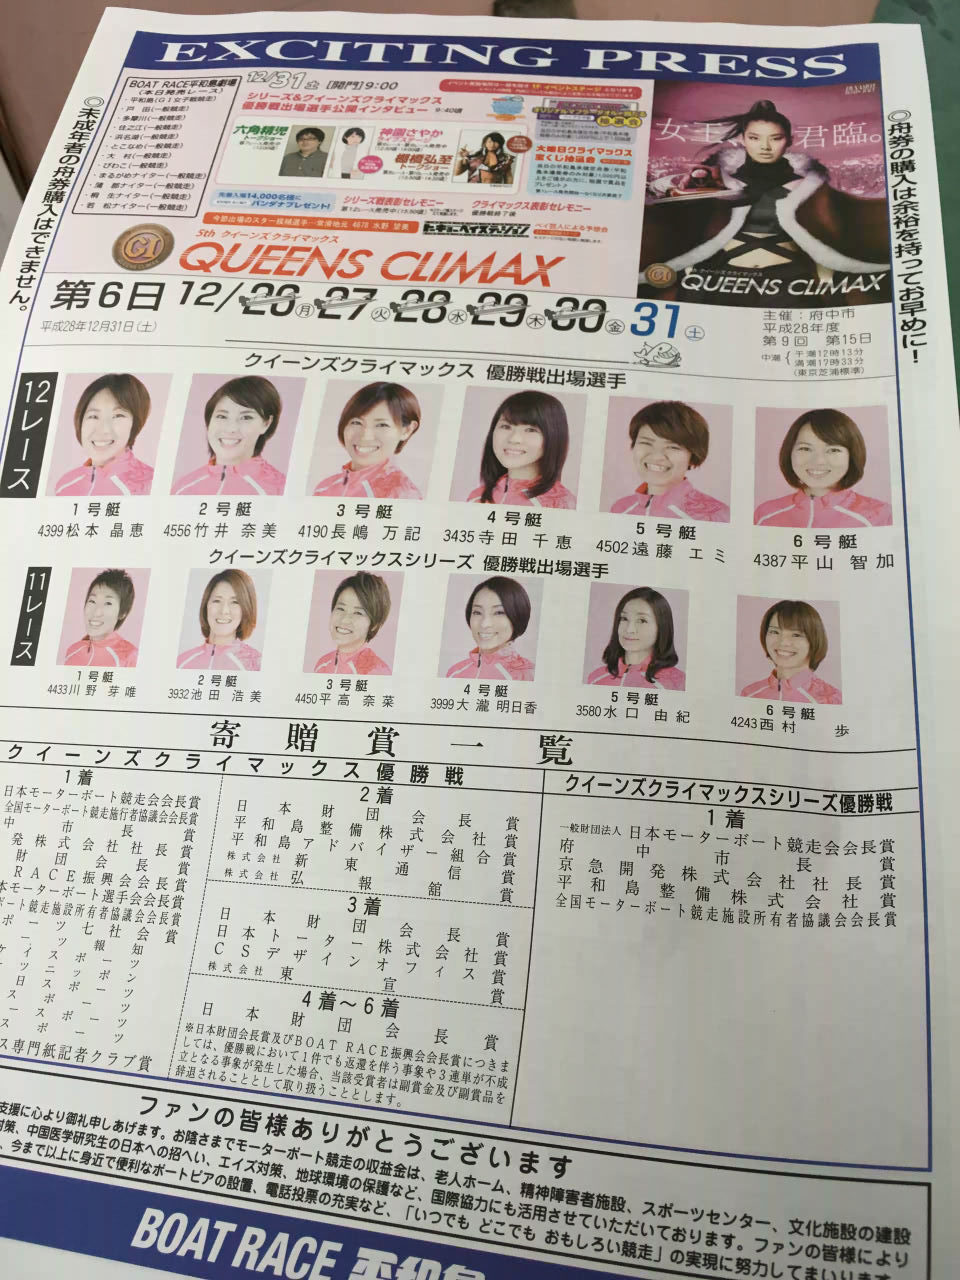 EXCITING PRESS
BOAT RACE平和島劇場
(本日発売レース)
・平和島(GⅠ女子戦競走)
・戸 田(一般競走)
・多摩川(一般競走)
・住之江(一般競走)
・浜名湖(一般競走)
・とこなめ(一般競走)
・大 村(一般競走)
・びわこ(一般競走)
・まるがめナイター(一般競走)
・蒲 郡ナイター(一般競走)
・桐 生ナイター(一般競走)
・若 松ナイター(一般競走)
12/31土 [開門]9:00
シリーズ&クイーンズクライマックス
優勝戦出場選手公開インタビュー 9:40頃
六角精児
神園さやか
棚橋弘至
トークショー
大晦日クライマックス
宝くじ抽選会
先着入場14,000名様に
バンダナプレゼント!
シリーズ戦表彰セレモニー
クライマックス表彰セレモニー
優勝戦終了後
今節出場のスター候補選手…常滑地元 4678 水野 望美
トーキョーベイステーション
ベイ巨人による予想会
女王、君臨。
GⅠ
5th クイーンズクライマックス
QUEENS CLIMAX
GⅠ
クイーンズクライマックス
QUEENS CLIMAX
◎未成年者の舟券購入はできません。
◎舟券の購入は余裕を持ってお早めに!
第6日 12/26月27火28水29木30金31土
平成28年12月31日(土)
主催:府中市
平成28年度
第9回 第15日
中潮 干潮12時13分
満潮17時33分
(東京芝浦標準)
クイーンズクライマックス 優勝戦出場選手
12レース
1号艇
4399松本 晶恵
2号艇
4556竹井 奈美
3号艇
4190長嶋 万記
4号艇
3435寺田 千恵
5号艇
4502遠藤 エミ
6号艇
4387平山 智加
クイーンズクライマックスシリーズ 優勝戦出場選手
11レース
1号艇
4433川野 芽唯
2号艇
3932池田 浩美
3号艇
4450平高 奈菜
4号艇
3999大瀧 明日香
5号艇
3580水口 由紀
6号艇
4243西村 歩
寄贈賞一覧
クイーンズクライマックス優勝戦
1着
日本モーターボート競走会会長賞
全国モーターボート競走施行者協議会会長賞
中市長賞
発株式会社社長賞
財団会長賞
RACE振興会会長賞
本モーターボート選手会会長賞
ート競走施設所有者協議会会長賞
ポーツ七社会賞
ーツ報知
ケイスポーツ
ーツニッポン
日スポーツ
スポーツ
ースポーツ
スポーツ
ス専門紙記者クラブ賞
2着
日本財団会長賞
平和島整備株式会社賞
平和島アドバイザー組合賞
株式会社 新東通信賞
株式会社 弘報舘賞
3着
日本財団会長賞
日本トーター株式会社賞
CSデザインオフィス賞
株式会社 東宣賞
4着~6着
日本財団会長賞
※日本財団会長賞及びBOAT RACE振興会会長賞につきま
しては、優勝戦において1件でも返還を伴う事象や3連単が不成
立となる事象が発生した場合、当該受賞者は副賞金及び副賞品を
辞退されることとして取り扱うこととします。
クイーンズクライマックスシリーズ優勝戦
1着
一般財団法人 日本モーターボート競走会会長賞
府中市長賞
京急開発株式会社社長賞
平和島整備株式会社賞
全国モーターボート競走施設所有者協議会会長賞
ファンの皆様ありがとうございます
支援に心より御礼申しあげます。お陰さまでモーターボート競走の収益金は、老人ホーム、精神障害者施設、スポーツセンター、文化施設の建設
対策、中国医学研究生の日本への招へい、エイズ対策、地球環境の保護など、国際協力にも活用させていただいております。ファンの皆様により
、今まで以上に身近で便利なボートピアの設置、電話投票の充実など、「いつでも どこでも おもしろい競走」の実現に努力してまいりま
BOAT RACE 平和島